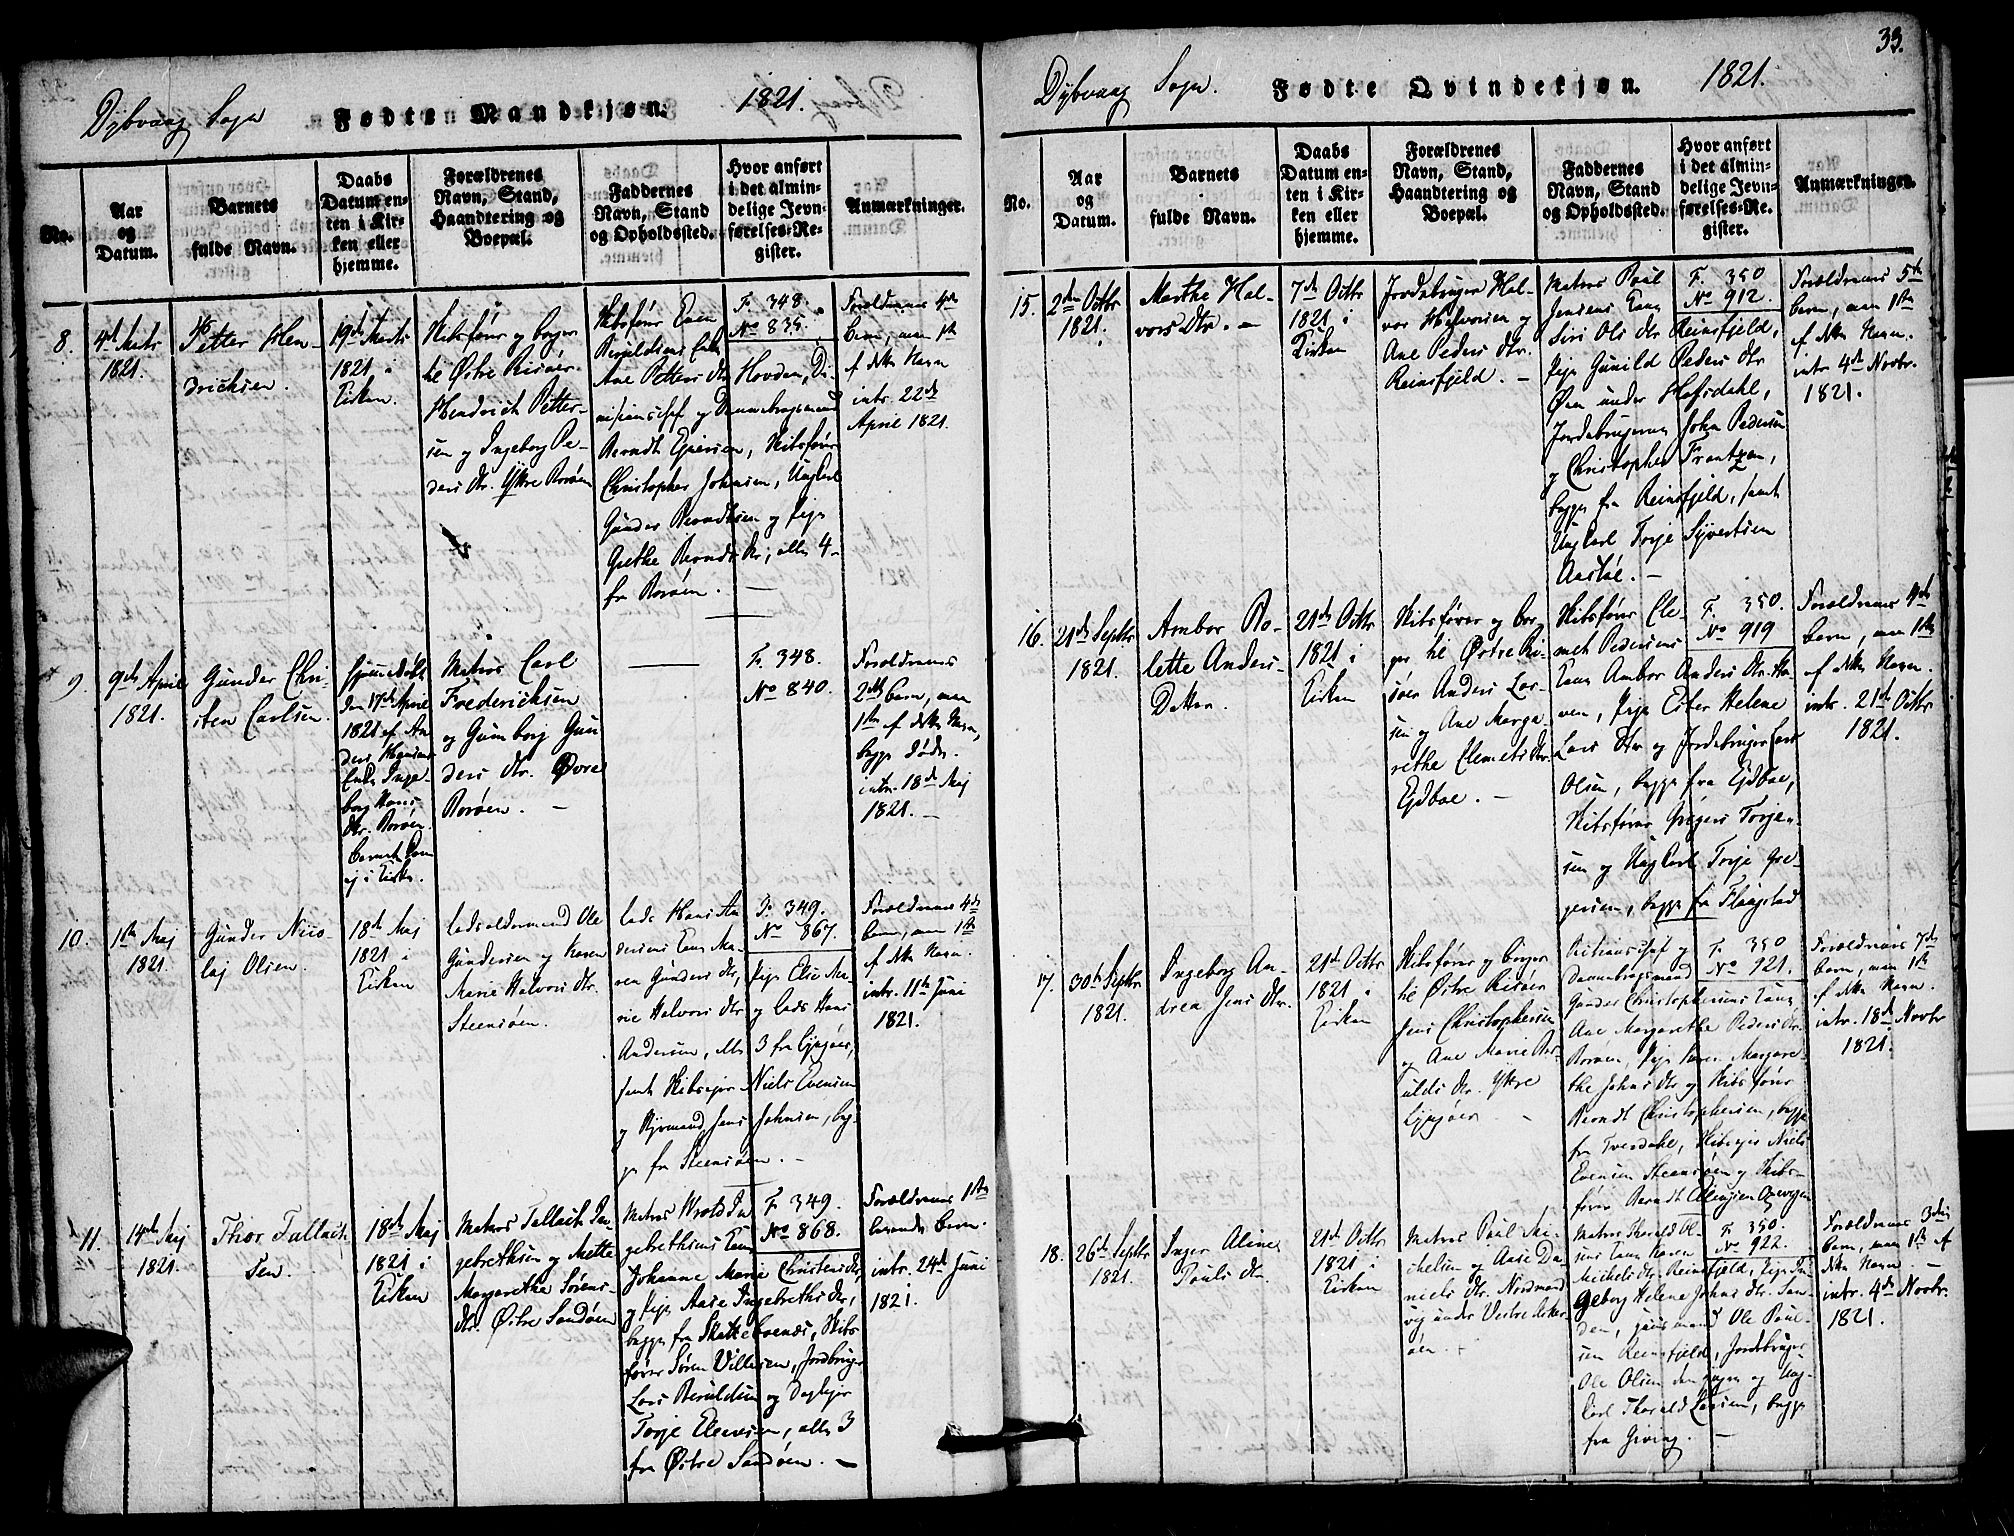 Dybvaag Sogn
Fødte Mandkjøn.
1821.
No.
Aar
og
Datum.
Barnets
fulde Navn.
Daabs
Datum en-
ten i Kir-
ken eller
hjemme.
Forældrenes
Navn, Stand,
Haandtering og
Boepæl.
Faddernes
Navn, Stand
og Opholdssted.
Hvor anført
i det almin-
delige Jevn-
førelses-Re-
gister.
Anmærkninger.
8.
4de Marts
1821.
Petter Hen-
drichsen.
19de Marts
1821 i
Kirken.
Skibsfører og borger
til Østre Risøer
Hendrich Petter-
sen og Ingeborg Pe-
ders dtr. Yttre Borøen
Skibsfører Even
Ane Petters dtr Hovden, Di-
og Dannebrogsmand
Berndt Ejersen, Skibsfører
Christopher Johnsen, Ungkarl
Gunder Berndtsen og pige
Grethe Berndts dtr, alle 4-
fra Borøen.
F. 348.
No 835.
Forældrenes 4de
barn, men 1ste
af dette Navn
intr. 22de
April 1821.
9.
9de April
1821.
Gunder Chri-
sten Carlsen.
hjemmedøbt
den 17de April
1821 af An-
ders Hansens
Enke Inge-
borg Hans
dtr. Borøen.
barnet kom
ej i Kirke.
Matros Carl
Frederichsen
og Gunborg Gun
ders dtr. Øvre
Borøen.
F. 348.
No 840.
Forældrenes
2det barn, men
1ste af dette Navn,
begge døde.
intr. 18de Maj
1821.
10.
1ste Maj
1821.
Gunder Nico-
laj Olsen.
18de Maj
1821 i
Kirken
Ladsoldermand Ole
Gundersen og Karen
Marie Halvors dtr.
Steensøen.
Lods Hans An-
dersens Kone Ma-
ren Gunders dtr, pige Elie Ma-
rie Halvors dtr og Lods Hans
Andersen, alle 3 fra Lyngøer,
samt Skibsejer Niels Evensen
og Styrmand Jens Johnsen, beg-
ge fra Steensøen.
F. 349.
No 867.
Forældrenes 4de
barn, men 1ste
af dette Navn.
intr. 11te Juni
1821.
11.
14de Maj
1821.
Thor Tallach-
sen.
18de Maj
1821 i
Kirken
Matros Tallach In-
gebrethsen og Mette
Margarethe Sørens-
dtr. Østre Sandøen
Matros Wrold In-
gebrethsens Kone
Johanne Marie Christens dtr,
og pige Aasie Ingebreths dtr,
begge fra , Skibs-
fører Søren Villesen, Jordbruger
Lars Beruldsen og Daglejer
Torje Ellevsen, alle 3
fra Østre Sandøen.
F. 349.
No 868.
Forældrenes 1ste
barn.
intr. 24de Juni
1821.
33.
Dybvaag Sogn.
Fødte Qvindekjøn.
1821.
No.
Aar
og
Datum.
Barnets
fulde Navn.
Daabs
Datum en-
ten i Kir-
ken eller
hjemme.
Forældrenes
Navn, Stand,
Haandtering og
Boepæl.
Faddernes
Navn, Stand
og Opholdssted.
Hvor anført
i det almin-
delige Jevn-
førelses-Re-
gister.
Anmærkninger.
15.
2den Octbr
1821.
Marthe Hal-
vors Dtr.
7de Octbr
1821 i
Kirken
Jordebruger Hal-
vor Halvorsen og
Ane Peders dtr.
Reinsfjeld.
Matros Paul
Jensens Kone
Siri Ols dtr Reinsfjeld,
Pige Gunild Peders dtr
Øen under Hofsdahl,
Jordebrugerne John Pedersen
og Christopher Frantzen,
begge fra Reinsfjeld, samt
Ungkarl Torje Syvertsen
Aastøe.
F. 350
No 912.
Forældrenes 5te
barn, men 1ste
af dette Navn.
intr. 4de Novbr.
1821.
16.
21de Septbr
1821.
Ambor Bo-
lette Anders-
Datter.
21de Octbr
1821 i
Kirken
Skibsfører og bor-
ger til Østre Ri-
søer Anders Lar-
sen og Ane Marga-
rethe Clemets dtr.
Ejdboe.
Skibsfører Cle-
met Pedersens
Kone Ambor Anders dtr. Ha-
ven, pige Ester Helene
Lars dtr og Jordebruger Lars
Olsen, begge fra Ejdboe,
Skibsfører Gregers Torje-
sen og Ungkarl Torje Gre-
gersen, begge fra Flaagstad
F. 350.
No 919
Forældrenes 4de
barn, men 1ste
af dette Navn.
intr. 21de Octbr
1821.
17.
30te Septbr
1821.
Ingeborg An-
drea Jens dtr.
21de Octbr
1821 i
Kirken
Skibsfører og borger
til Østre Risøer
Jens Christophersen
og Ane Marie Ber-
ulds dtr. Yttre
Lyngøer
og
Dannebrogsmand
Gunder Christophersens Kone
Ane Margarethe Peders dtr.
Borøen, pige Karen Margare-
the Johns dtr og Skibsfører
Berndt Christophersen, begge
fra Tverdahl, Skibsejer Niels
Evensen Steensøen og Skibs-
fører Berndt
F. 350
No 921.
Forældrenes 7de
barn, men 1ste
af dette Navn.
intr. 18de Novbr
1821.
18.
26de Septbr
1821.
Inger Aline
Pouls dtr.
21de Octbr
1821 i
Kirken
Matros Paul Mi-
chelsen og Aase Da-
niels dtr. Nordmand
vig under Vestre
øen.
Matros Harald Ol-
sens Kone Karen
Michels dtr. Reinsfjeld, pige In-
geborg Helene Johns dtr. San-
den, Huusmand Ole Paul-
sen Reinsfjeld, Jordebruger
Ole Olsen den yngre og Ung-
karl Thorald Larsen, begge
fra Gjeving.
F. 350.
No 922.
Forældrenes 3die
barn, men 1ste af
dette Navn.
intr. 4de Novbr.
1821.